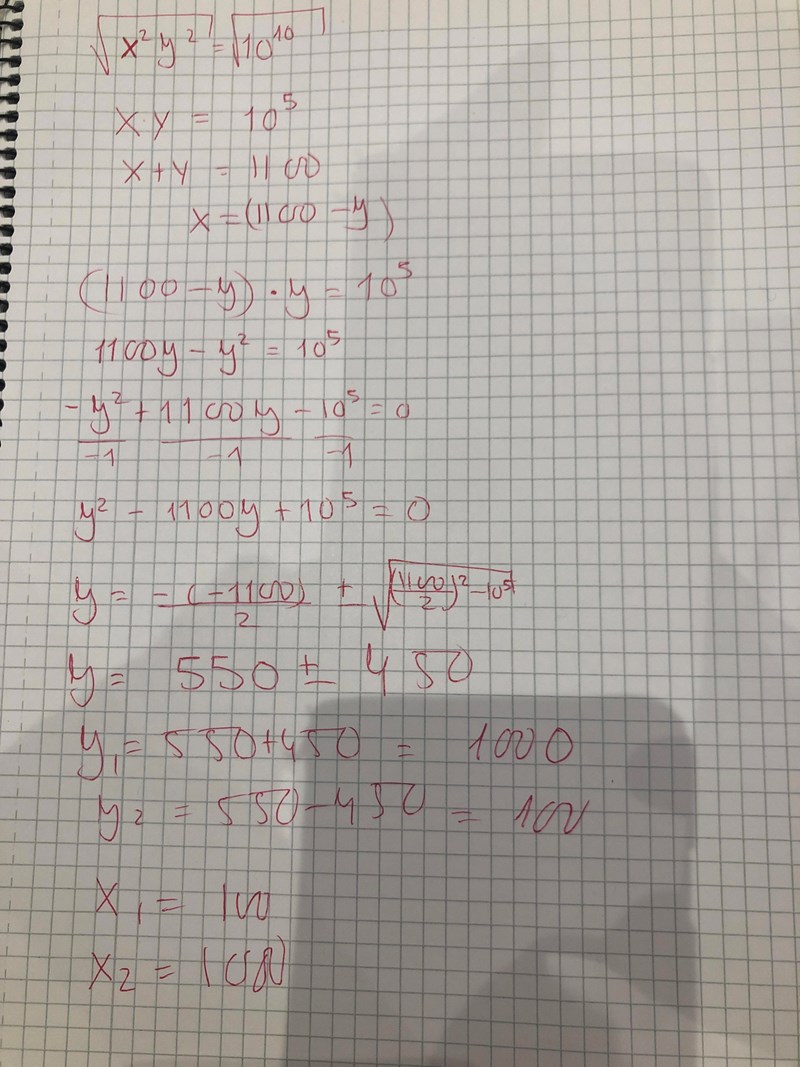 √(x²y²) = √(10¹⁰)
x·y = 10⁵
x+y = 1100
x = (1100 - y)
(1100 - y) · y = 10⁵
1100y - y² = 10⁵
-y²/-1 + 1100y/-1 - 10⁵/-1 = 0
y² - 1100y + 10⁵ = 0
y = -(-1100)/2 ± √((1100/2)² - 10⁵)
y = 550 ± 450
y₁ = 550+450 = 1000
y₂ = 550-450 = 100
x₁ = 100
x₂ = 1000